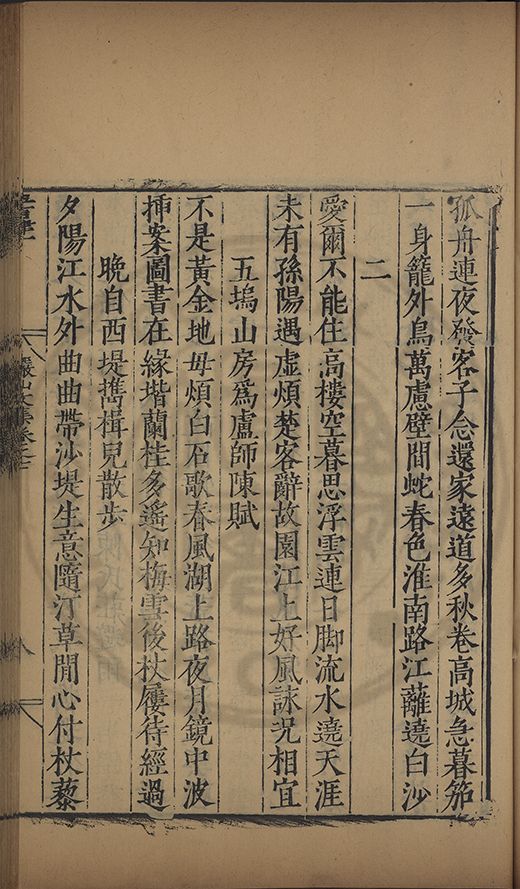 孤舟連夜發客子念還家遠道多秋卷高城急暮笳
一身籠外鳥萬慮壁間蛇春色淮南路江蘺遶白沙
二
愛爾不能住高樓空暮思浮雲連日脚流水遶天涯
未有孫陽遇虛煩楚客辭故園江上好風詠況相宜
五塢山房爲盧師陳賦
不是黃金地毋煩白石歌春風湖上路夜月鏡中波
揷案圖書在緣堦蘭桂多遙知梅雪後杖屨待經過
晩自西堤攜楫兒散步
夕陽江水外曲曲帶沙堤生意隨汀草閒心付杖藜
儼山文集卷之七